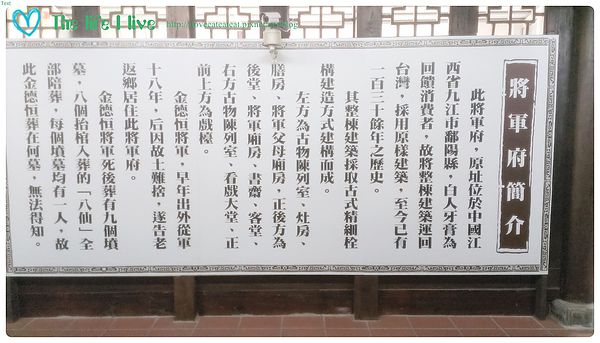 Test
The life I live
將軍府簡介
此將軍府，原址位於中國江
西省九江市鄱陽縣，白人牙膏為
回饋消費者，故將整棟建築運回
台灣，採用原樣建築，至今已有
一百三十餘年之歷史。
其整棟建築採取古式精細栓
構建造方式建構而成。
左方為古物陳列室、灶房、
膳房、將軍父母廂房，正後方為
後堂、將軍廂房、書齋、客堂、
右方古物陳列室、看戲大堂、正
前上方為戲檯。
金德恒將軍，早年出外從軍
十八年，后因故土難捨，遂告老
返鄉居住此將軍府。
金德恒將軍死後葬有九個墳
墓，八個抬棺人葬的「八仙」全
部陪葬，每個墳墓均有一人，故
此金德恒葬在何墓，無法得知。